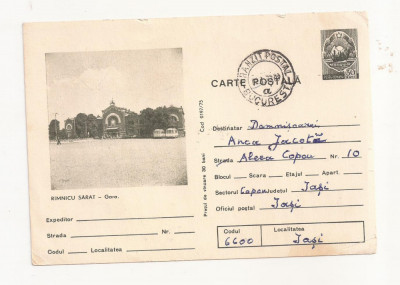 RIMNICU SĂRAT – Gara.
Expeditor
Strada Nr.
Codul Localitatea
Cod 0197/75
Prețul de vînzare 30 bani
CARTE POȘTALĂ
TRANZIT POSTAL
BUCUREȘTI
Destinatar Domnișoarei
Anca Iacotă
Strada Aleea Copou Nr. 10
Blocul Scara Etajul Apart.
Sectorul Copou Județul Iași
Oficiul poștal Iași
Codul Localitatea
6600 Iași